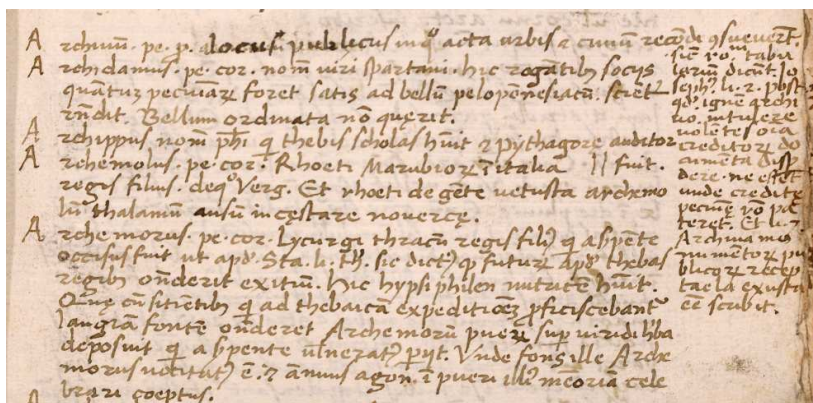 Archiuū. pe. p. a locus publicus in quo acta urbis et ciuiū recōdi ꝯsueuerūt.
Archidamus. pe. cor. nom̄ uiri spartani. hic rogātibꝰ socijs
quātuȝ pecuniaꝝ foret satis ad bellū peloponēsiacū. scietur
rn̄dit. Bellum ordinata nō querit.
Archippus nom̄ ph̄i qui thebis scholas hūit et pythagore auditor
Archemolus. pe. cor. Rhoeti Marubioꝝ ī italia // fuit.
regis filius. de quo Verg. Et rhoeti de gēte uetusta archemo
lū thalamū ausū incęstare nouercę.
Archemorus. pe. cor. Lycurgi thracū regis filiꝰ qui a ẜpente
occisus fuit ut apd̄. Sta. li. th̄. sic dictꝰ qꝫ futuꝝ apd̄ thebas
regibꝰ on̄derit exitiū. Hic hypsiphilen nutricē hūit.
Quę cū sitientibꝰ qui ad thebaicā expeditiōeȝ ꝓficiscebantur
langiā fontē on̄deret Archemorū pueꝝ super uiridi hꝰba
deposuit qui a ẜpente uulneratꝰ ꝑijt. Vnde fons ille Arche
morus uocitatꝰ ē. et ānuus agon. ī pueri illiꝰ memoriā cele
brari coeptus.
sic rom. tabu
larium dicūt. Jo
seph. li. 2. post
qd̄ ignē archi
uo. intulere
uolētes oīa
creditoꝝ do
cumēta disꝑ
dere. ne esset
unde credite
pecunię rō pa
teret. Et li. 7.
Archiua mo
numentoꝝ pu
blicoꝝ recep
tacla exusta
eē scribit.